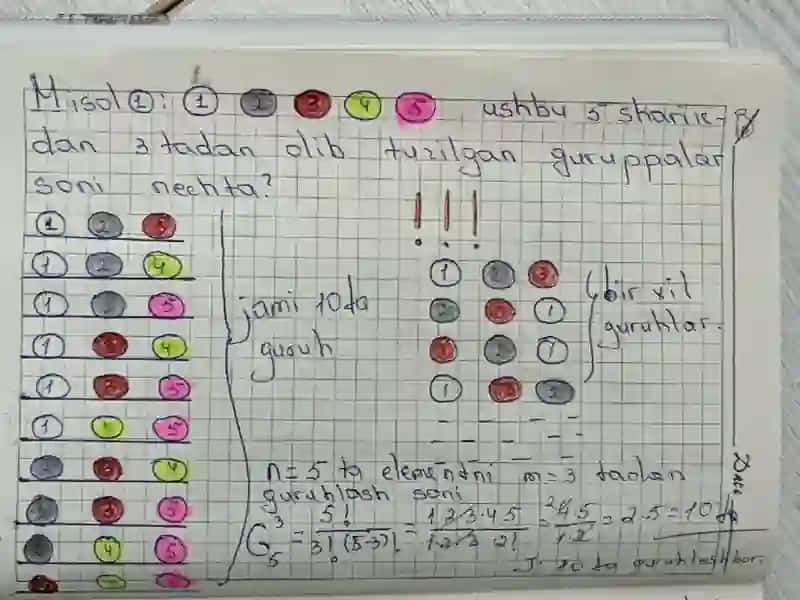 Misol ①: ① ② ③ ④ ⑤ ushbu 5 sharik-
dan 3 tadan olib tuzilgan guruppalar
soni nechta?
! ! !
1 2 3
1 2 4
1 2 5
1 3 4
1 3 5
1 4 5
2 3 4
2 3 5
2 4 5
3 4 5
jami 10 ta
guruh
1 2 3
2 3 1
3 2 1
1 3 2
bir xil
guruhlar.
n=5 ta elementni m=3 tadan
guruhlash soni
C₅³ = 5!/3!(5-3)! = 1·2·3·4·5/1·2·3·2! = 4·5/1·2 = 2·5 = 10 ta
J: 10 ta guruhlash bor.